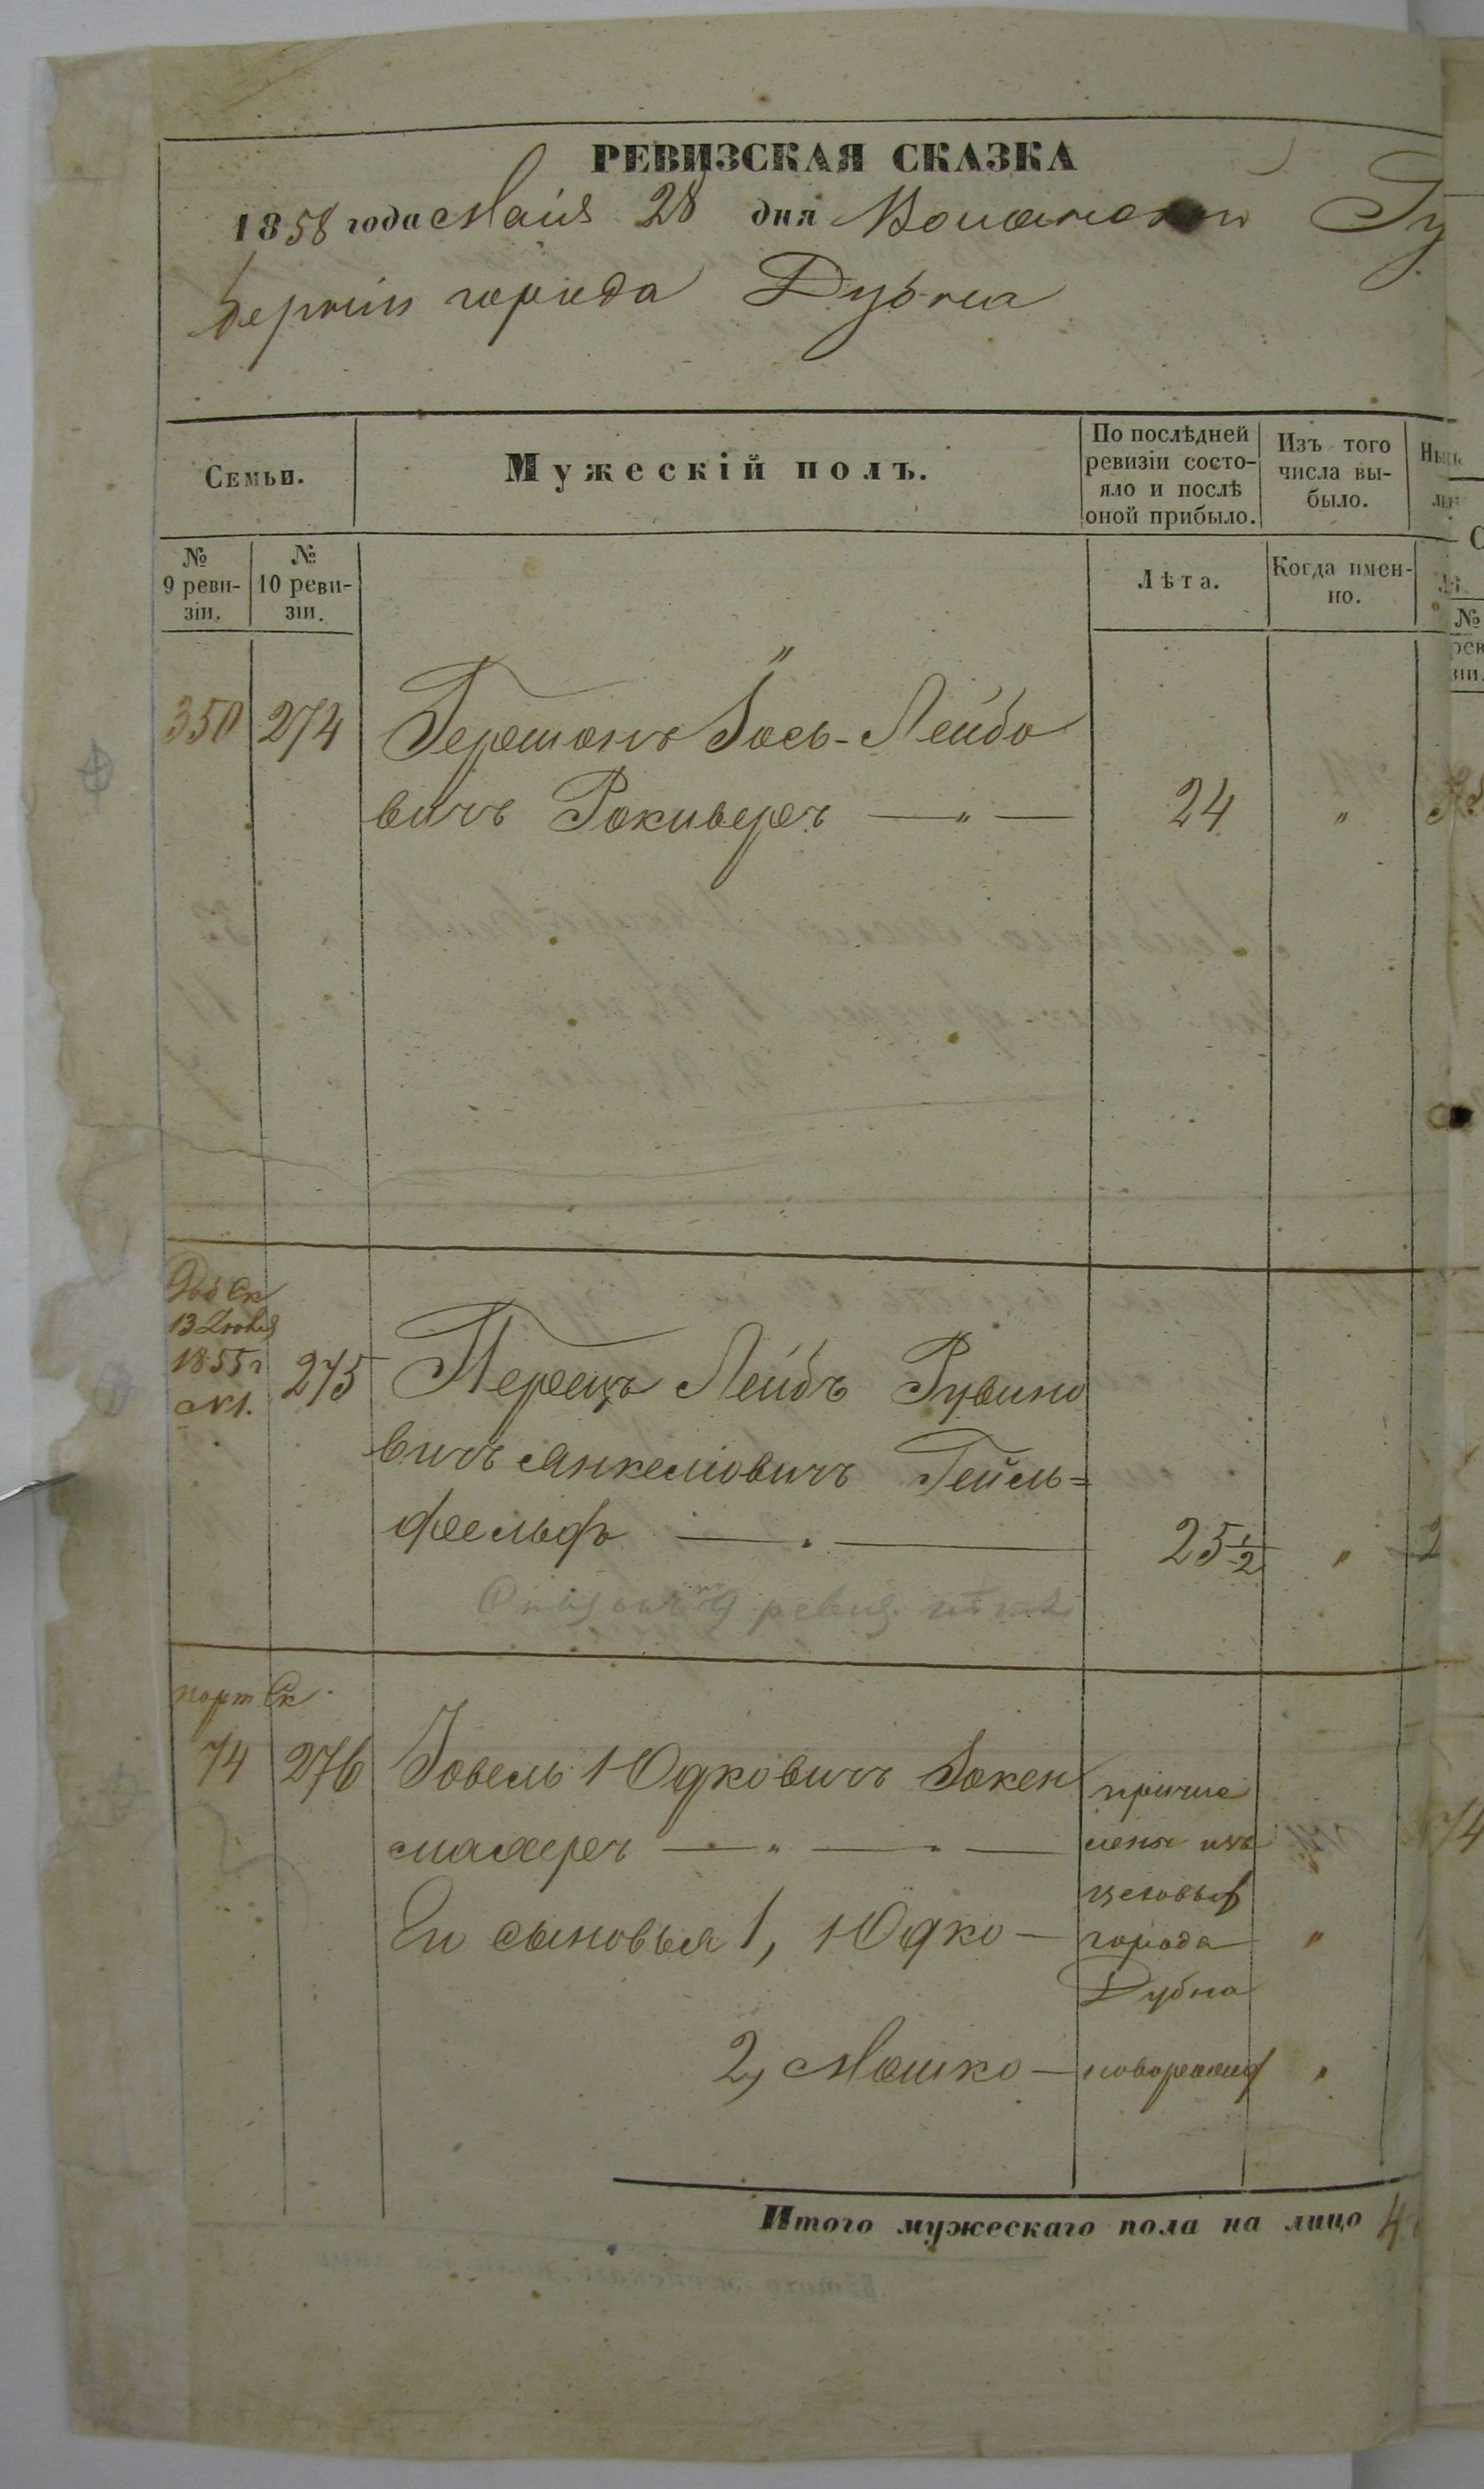 РЕВИЗСКАЯ СКАЗКА
1858 года Маія 28 дня Волынской Гу
берніи города Дубна
Семьи.
Мужескій полъ.
По послѣдней
ревизіи состо-
яло и послѣ
оной прибыло.
Изъ того
числа вы-
было.
№
9 реви-
зіи.
№
10 реви-
зіи.
Лѣта.
Когда имен-
но.
350 274 Гершонъ Іось-Лейбо
вичъ Рокиверъ — „ — 24 „
Доб Ск
13 Іюля
1855 г
№1.
275 Перецъ Лейбъ Рувино
вичъ Янкеліовичъ Гейль=
фельфъ 25 1/2 „
ревиз.
Ск
74 276 Іовель Юдковичъ Зокен
махеръ — „ — „ —
причис
лены изъ
цеховыхъ
города
Дубна
Его сыновья 1, Юдко — „
2, Мошко — „
Итого мужескаго пола на лицо 4